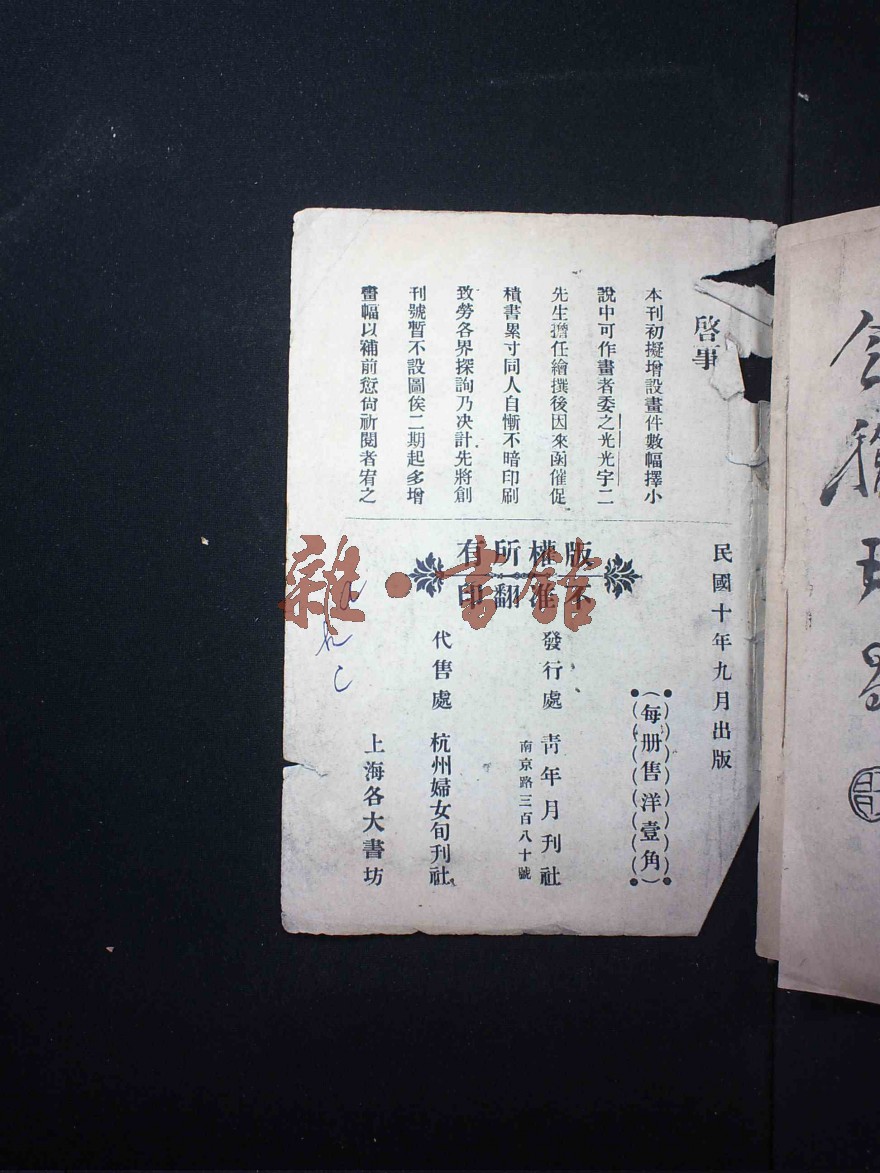 啓事
本刊初擬增設畫件數幅擇小
說中可作畫者委之光光宇二
先生擔任繪撰後因來函催促
積書累寸同人自慚不暗印刷
致勞各界探詢乃决計先將創
刊號暫不設圖俟二期起多增
畫幅以補前愆尙祈閱者宥之
民國十年九月出版
每册售洋壹角
版權所有
不准翻印
發行處 靑年月刊社
南京路三百八十號
代售處 杭州婦女旬刊社
上海各大書坊
雜·書館